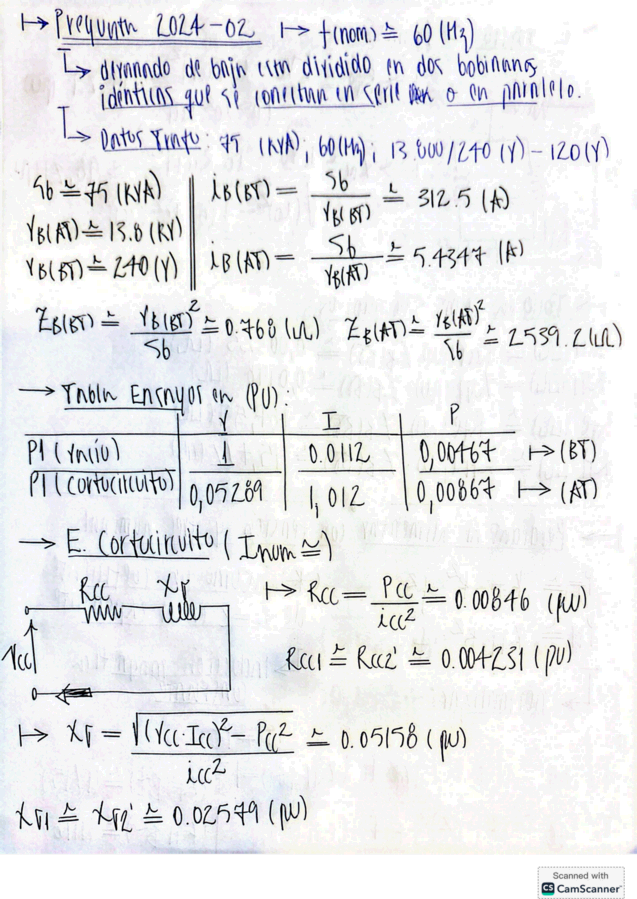 ↦ Pregunta 2024-02 ↦ f(nom) ≅ 60 (Hz)
↳ devanado de baja esta dividido en dos bobinas
idénticas que se conectan en serie o en paralelo.
↳ Datos Trafo: 75 (KVA); 60(Hz); 13.800/240 (V) - 120(V)
Sb ≅ 75 (KVA)
VB(AT) ≅ 13.8 (KV)
VB(BT) ≅ 240 (V)
iB(BT) = Sb / VB(BT) ≅ 312.5 (A)
iB(AT) = Sb / VB(AT) ≅ 5.4347 (A)
ZB(BT) ≅ VB(BT)² / Sb ≅ 0.768 (Ω) ZB(AT) ≅ VB(AT)² / Sb ≅ 2539.2 (Ω)
→ Tabla Ensayos en (PU):
V I P
P1 (vacío) 1 0.0112 0,00467 ↦ (BT)
P1 (cortocircuito) 0,05289 1,012 0,00867 ↦ (AT)
→ E. Cortocircuito ( Inom ≅)
Rcc Xσ
Vcc
↦ Rcc = Pcc / icc² ≅ 0.00846 (pu)
Rcc1 ≅ Rcc2' ≅ 0.004231 (pu)
↦ Xσ = √((Vcc·Icc)² − Pcc²) / icc² ≅ 0.05158 (pu)
Xσ1 ≅ Xσ2' ≅ 0.02579 (pu)
Scanned with
CS CamScanner